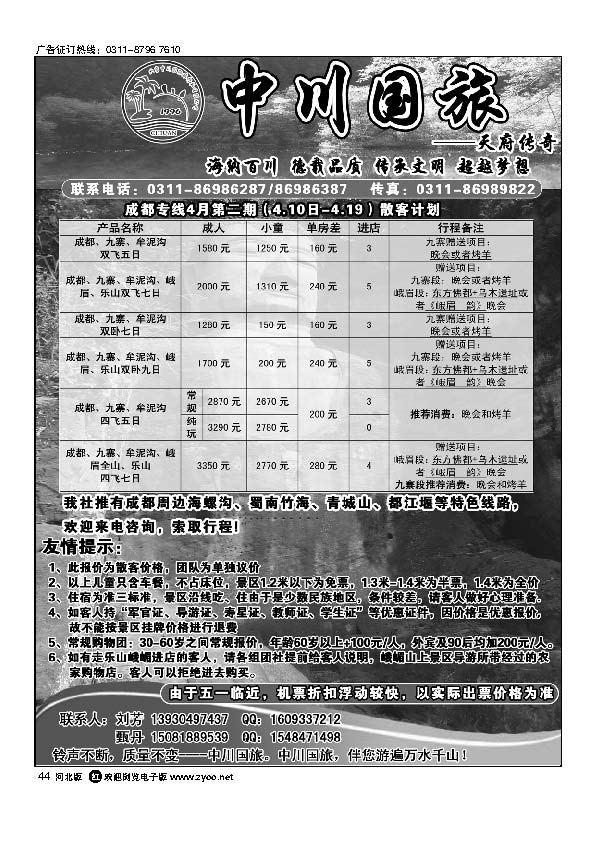 广告征订热线：0311-8796 7610
1996
中川国旅
——天府传奇
海纳百川 德载品质 传承文明 超越梦想
联系电话：0311-86986287/86986387 传真：0311-86989822
成都专线4月第二期（4.10日-4.19）散客计划
产品名称 成人 小童 单房差 进店 行程备注
成都、九寨、牟泥沟
双飞五日
1580 元 1250 元 160 元 3
九寨赠送项目：
晚会或者烤羊
成都、九寨、牟泥沟、峨
眉、乐山双飞七日
2000 元 1310 元 240 元 5
赠送项目：
九寨段：晚会或者烤羊
峨眉段：东方佛都+乌木遗址或
者《峨眉 韵》晚会
成都、九寨、牟泥沟
双卧七日
1280 元 150 元 160 元 3
九寨赠送项目：
晚会或者烤羊
成都、九寨、牟泥沟、峨
眉、乐山双卧九日
1700 元 200 元 240 元 5
赠送项目：
九寨段：晚会或者烤羊
峨眉段：东方佛都+乌木遗址或
者《峨眉 韵》晚会
成都、九寨、牟泥沟
四飞五日
常规 2870 元 2670 元 200 元 3
纯玩 3290 元 2780 元 0
推荐消费：晚会和烤羊
成都、九寨、牟泥沟、峨
眉全山、乐山
四飞七日
3350 元 2770 元 280 元 4
赠送项目：
峨眉段：东方佛都+乌木遗址或
者《峨眉 韵》晚会
九寨段推荐消费：晚会和烤羊
我社推有成都周边海螺沟、蜀南竹海、青城山、都江堰等特色线路，
欢迎来电咨询，索取行程！
友情提示：
1、此报价为散客价格，团队为单独议价
2、以上儿童只含车餐，不占床位，景区1.2米以下为免票，1.3米-1.4米为半票，1.4米为全价
3、住宿为准三标准，景区沿线吃、住由于是少数民族地区，条件较差，请客人做好心理准备。
4、如客人持“军官证、导游证、寿星证、教师证、学生证”等优惠证件，因价格是优惠报价，
故不能按景区挂牌价格进行退费
5、常规购物团：30-60岁之间常规报价，年龄60岁以上+100元/人，外宾及90后均加200元/人。
6、如有走乐山峨嵋进店的客人，请各组团社提前给客人说明，峨嵋山上景区导游所带经过的农
家购物店。客人可以拒绝进去购买。
由于五一临近，机票折扣浮动较快，以实际出票价格为准
联系人：刘芳 13930497437 QQ：1609337212
甄丹 15081889539 QQ：1548471498
铃声不断，质量不变——中川国旅。中川国旅，伴您游遍万水千山！
44 河北版 红 欢迎浏览电子版 www.zyoo.net